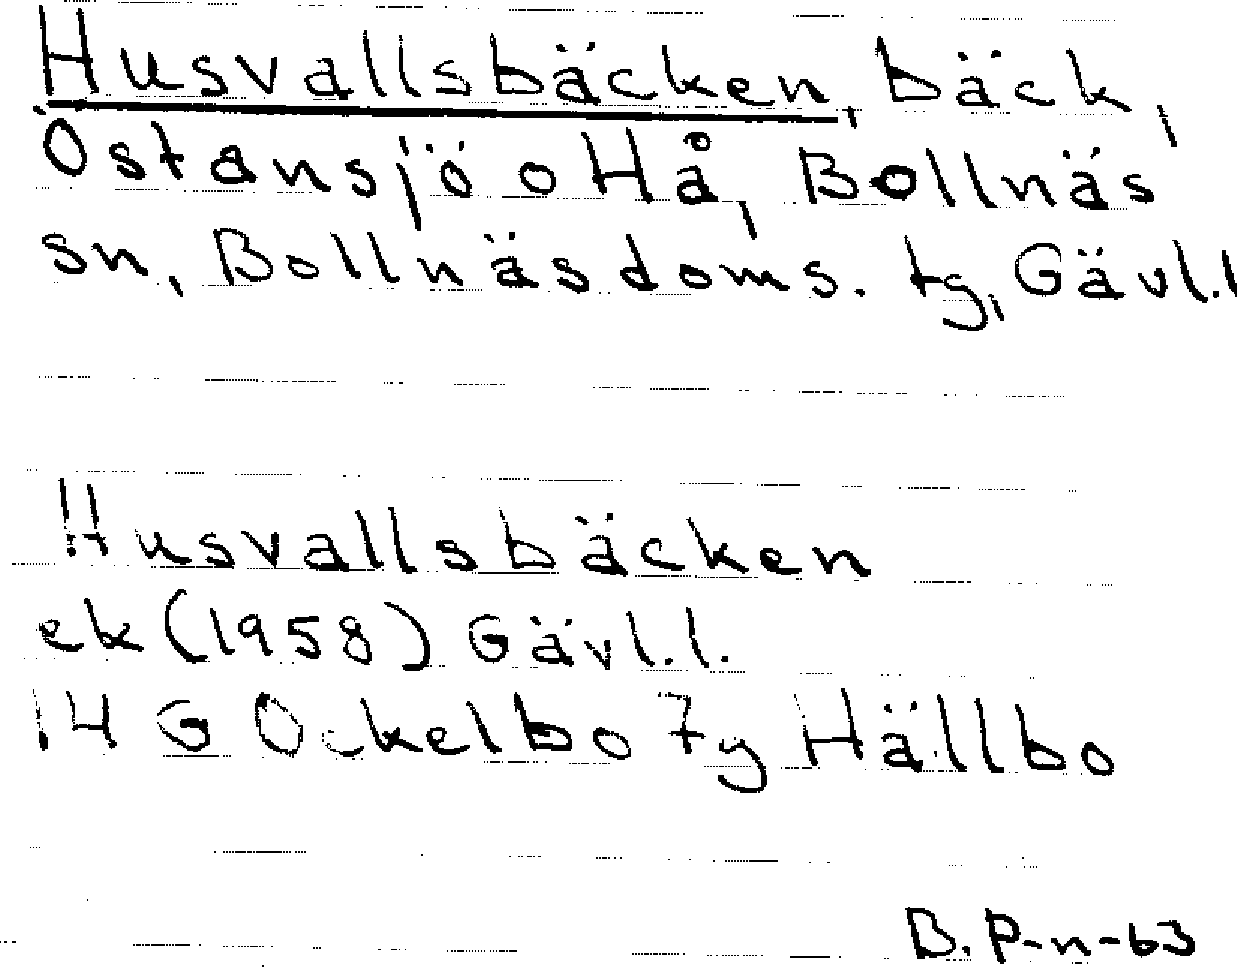 Husvallsbäcken, bäck,
Ostansjö o Hå, Bollnäs
sn, Bollnäs doms. tg, Gävl.l
Husvallsbäcken
ek (1958) Gävl.l.
14 G Ockelbo 7g Hällbo
B. P-n-63